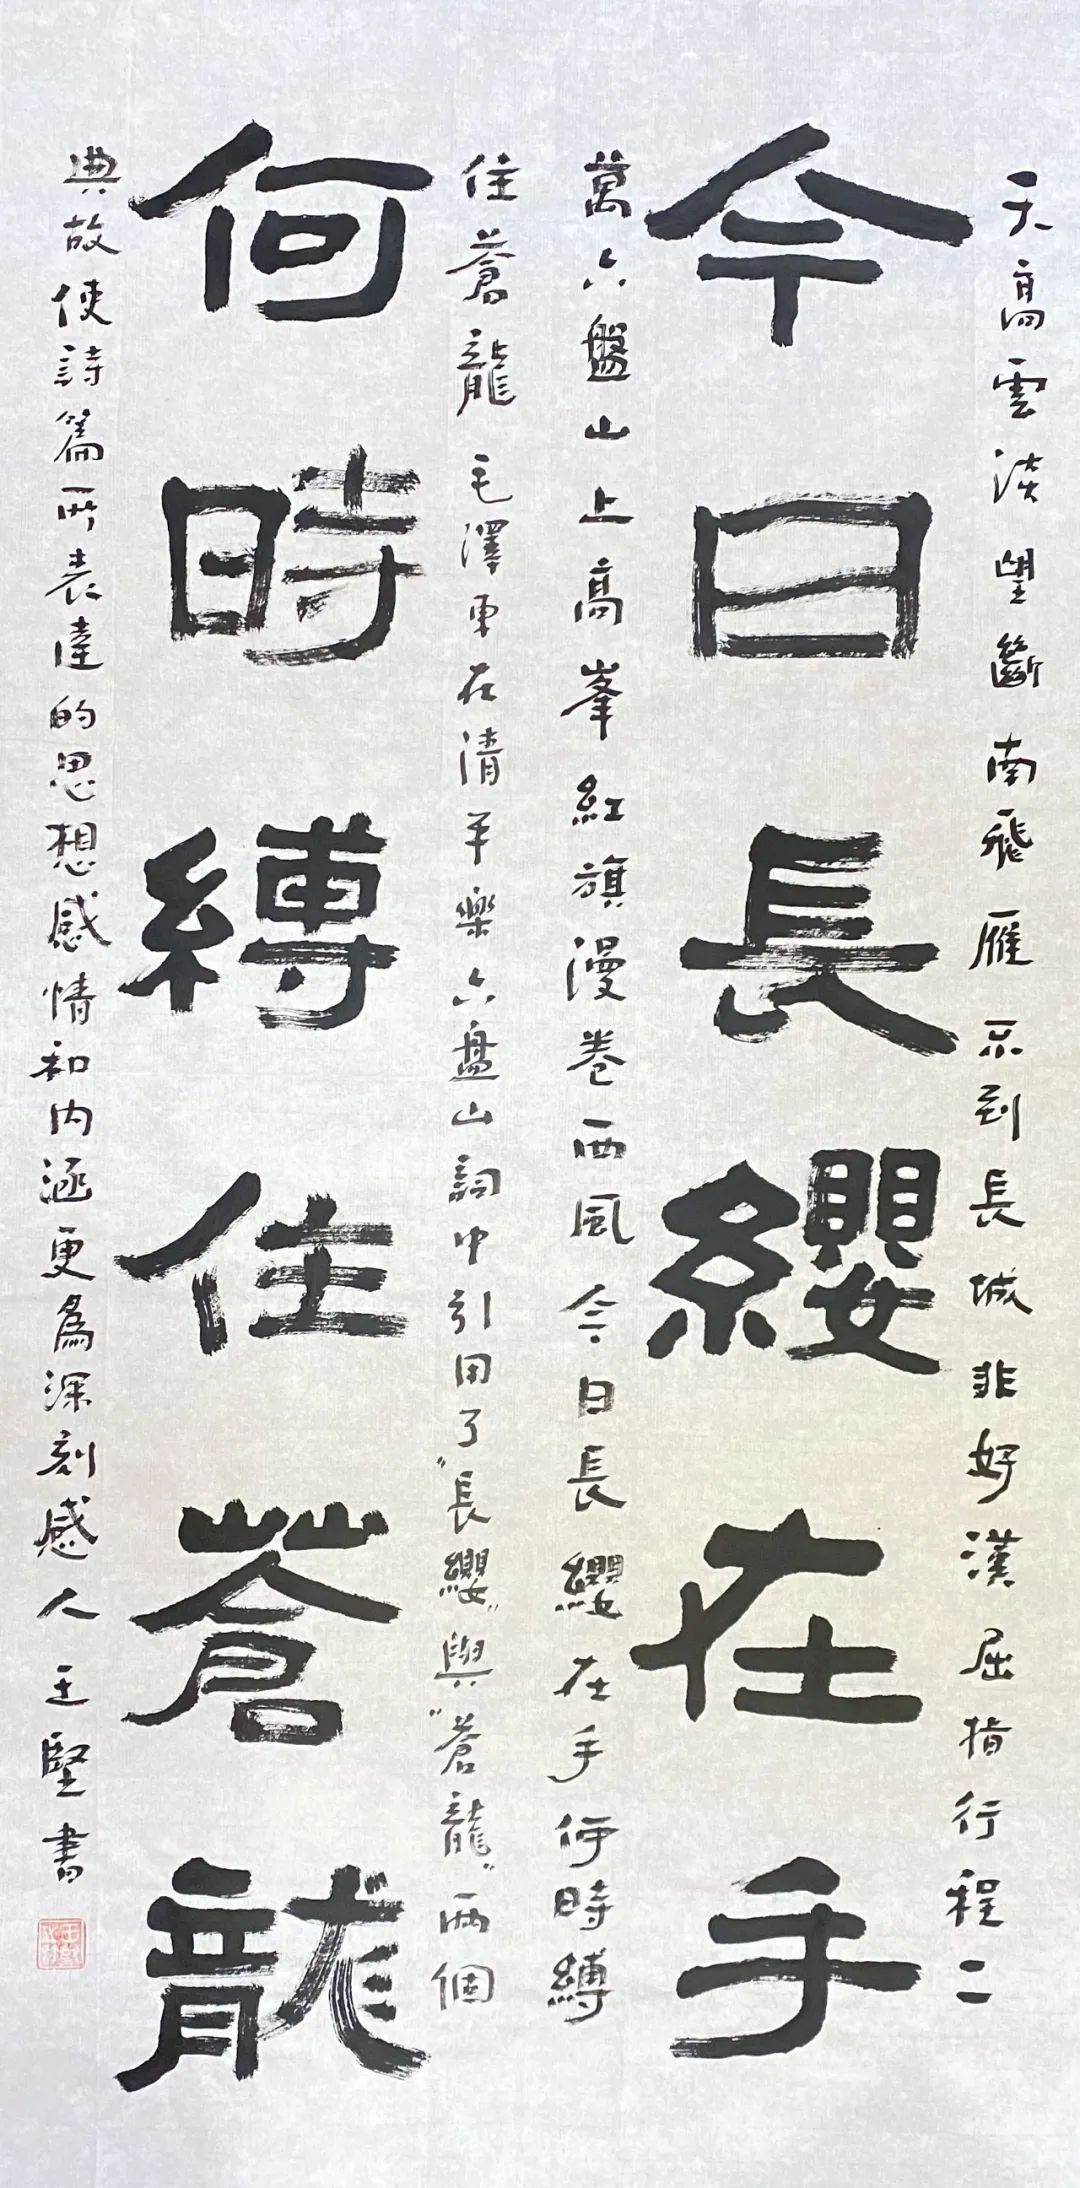 天高雲淡望斷南飛雁不到長城非好漢屈指行程二
今日長纓在手
萬六盤山上高峯紅旗漫卷西風今日長纓在手何時縛
住蒼龍 毛澤東在清平樂六盤山詞中引用了"長纓"與"蒼龍"兩個
何時縛住蒼龍
典故使詩篇所表達的思想感情和內涵更為深刻感人 王堅書